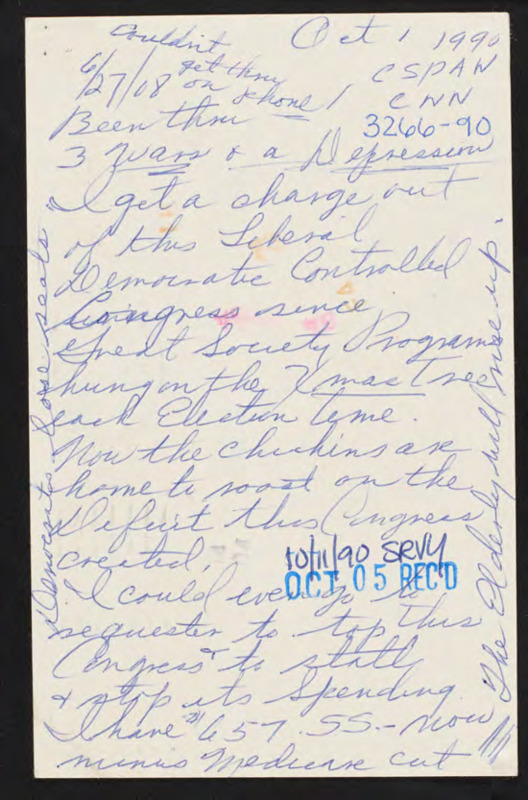 couldn't
get thru
on phone!
Oct 1 1990
CSPAN
CNN
6/27/08
3266-90
Been thru
3 Wars & a Depression
I get a charge out
of this Liberal
Democratic Controlled
Congress since
Great Society Programs
hung on the Xmas Tree
each Election time.
Now the chickins are
home to roost on the
Deficit this Congress
created.
10/11/90 SRVY
OCT 05 REC'D
I could even go to
sequester to stop this
Congress & to stall
& stop its spending
I have 657. SS - now
minus Medicare cut
Democrats loose seats
"The Elderly will rise up."